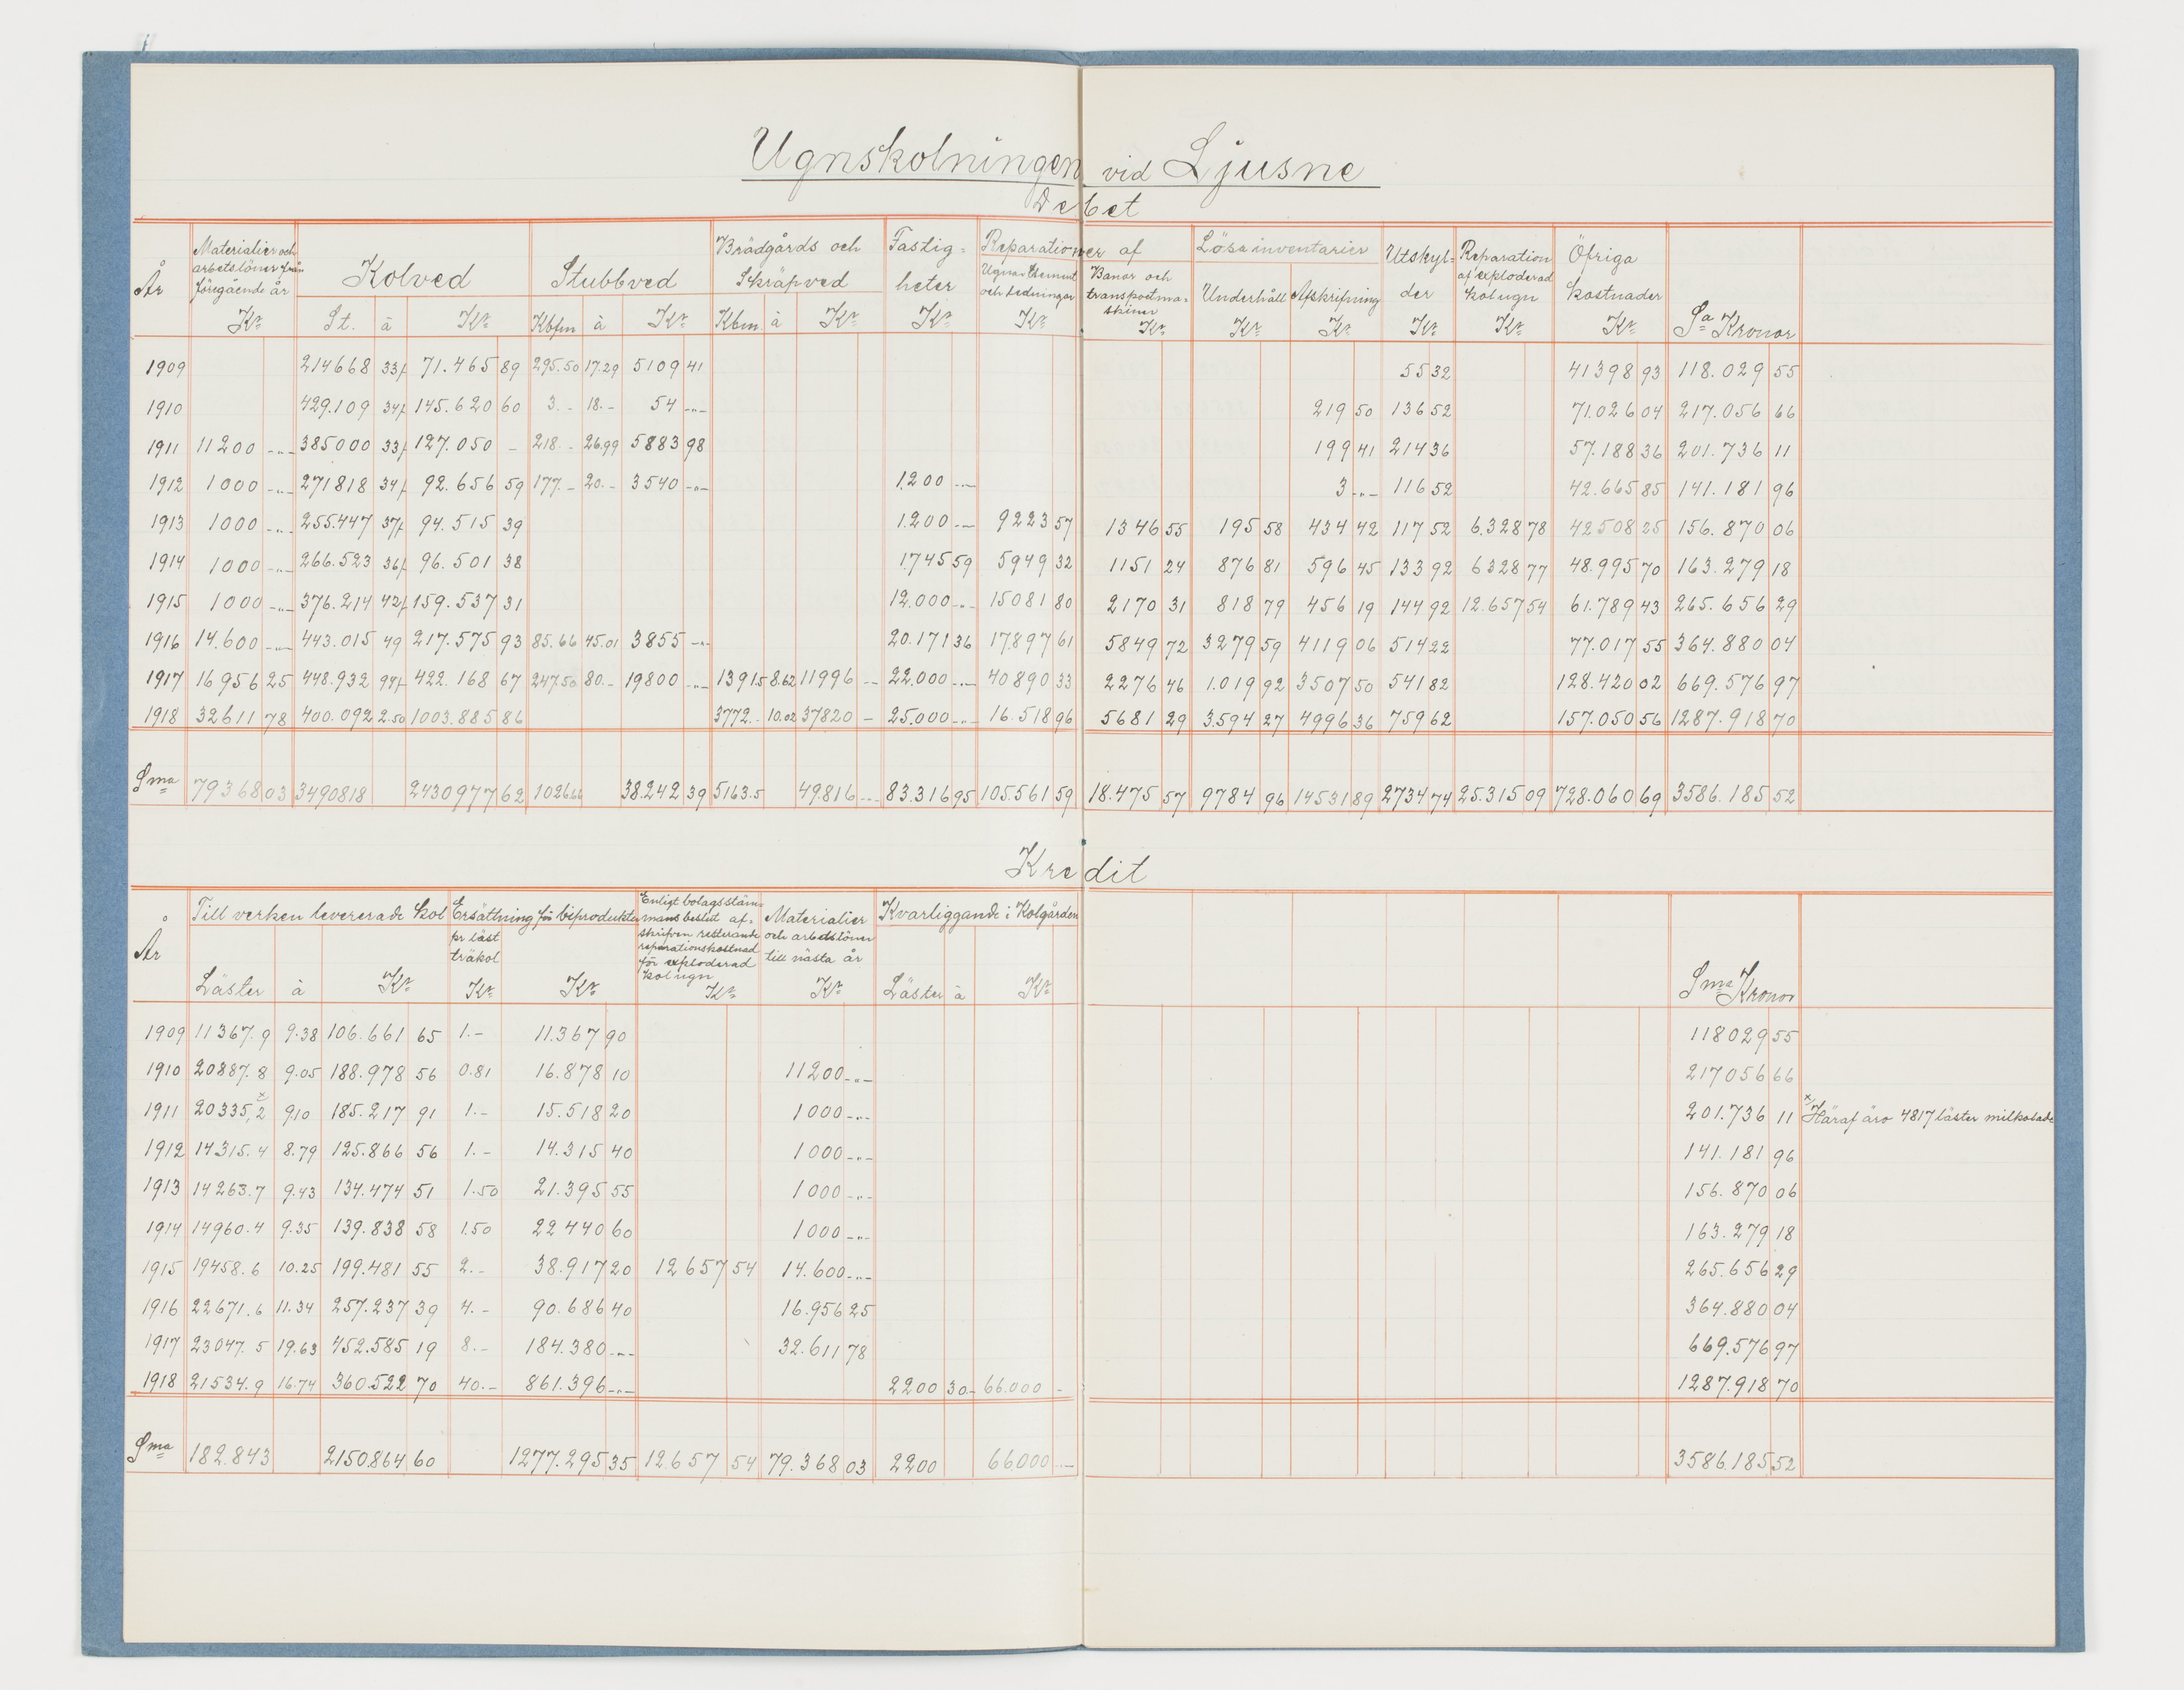 Ugnskolningen vid Ljusne
Debet
År Materialier och arbetslöner från föregående år Kolved Stubbved Brädgårds och Skräpved Fastigheter Reparationer af Lösa inventarier Utskylder Reparation af exploderad kolugn Öfriga kostnader Sa Kronor
Ugnar Element och Ledningar Banor och transportmaskiner Underhåll Afskrifning
Kr St. à Kr Kbfm à Kr Kbm à Kr Kr Kr Kr Kr Kr Kr Kr Kr
1909 214668 33f 71.465 89 295.50 17.29 5109 41 55 32 41398 93 118.029 55
1910 429.109 34f 145.620 60 3.- 18.- 54 -"- 219 50 136 52 71.026 04 217.056 66
1911 11200 -"- 385000 33f 127.050 - 218.- 26.99 5883 98 199 41 214 36 57.188 36 201.736 11
1912 1000 -"- 271818 34f 92.656 59 177.- 20.- 3540 -"- 1.200 -"- 3 -"- 116 52 42.665 85 141.181 96
1913 1000 -"- 255.447 37f 94.515 39 1.200 -"- 9223 57 1346 55 195 58 434 42 117 52 6.328 78 42508 25 156.870 06
1914 1000 -"- 266.523 36f 96.501 38 1.745 59 5949 32 1151 24 876 81 596 45 133 92 6328 77 48.995 70 163.279 18
1915 1000 -"- 376.214 42f 159.537 31 12.000 -"- 15081 80 2170 31 818 79 456 19 144 92 12.657 54 61.789 43 265.656 29
1916 14.600 -"- 443.015 49 217.575 93 85.66 45.01 3855 -"- 20.171 36 17.897 61 5849 72 3279 59 4119 06 514 22 77.017 55 364.880 04
1917 16956 25 448.932 94f 422.168 67 247.50 80.- 19800 -"- 1391.5 8.62 11996 -- 22.000 -"- 40890 33 2276 46 1.019 92 3507 50 541 82 128.420 02 669.576 97
1918 32611 78 400.092 2.50 1003.885 86 3772.- 10.02 37820 - 25.000 -"- 16.518 96 5681 29 3.594 27 4996 36 759 62 157.050 56 1287.918 70
Sma 79368 03 3490818 2430977 62 1026.66 38.242 39 5163.5 49.816 -"- 83.316 95 105.561 59 18.475 57 9784 96 14531 89 2734 74 25.315 09 728.060 69 3586.185 52
Kredit
År Till verken levererade kol Ersättning för biprodukter Enligt bolagsstämmans beslut afskrifven resterande reparationskostnad för exploderad kolugn Materialier och arbetslöner till nästa år Kvarliggande i Kolgården Sma Kronor
Läster à Kr pr läst träkol Kr Kr Kr Kr Läster à Kr
1909 11367.9 9.38 106.661 65 1.- 11.367 90 118029 55
1910 20887.8 9.05 188.978 56 0.81 16.878 10 11200 -"- 217056 66
1911 20335,2 x 9.10 185.217 91 1.- 15.518 20 1000 -"- 201.736 11 x/ Häraf äro 4817 läster milkolade
1912 14315.4 8.79 125.866 56 1.- 14.315 40 1000 -"- 141.181 96
1913 14263.7 9.43 134.474 51 1.50 21.395 55 1000 -"- 156.870 06
1914 14960.4 9.35 139.838 58 1.50 22440 60 1000 -"- 163.279 18
1915 19458.6 10.25 199.481 55 2.- 38.917 20 12657 54 14.600 -"- 265.656 29
1916 22671.6 11.34 257.237 39 4.- 90.686 40 16.956 25 364.880 04
1917 23047.5 19.63 452.585 19 8.- 184.380 -"- 32.611 78 669.576 97
1918 21534.9 16.74 360.522 70 40.- 861.396 -"- 2200 30.- 66.000 - 1287.918 70
Sma 182.843 2150.864 60 1277.295 35 12.657 54 79.368 03 2200 66000 -"- 3586.185 52